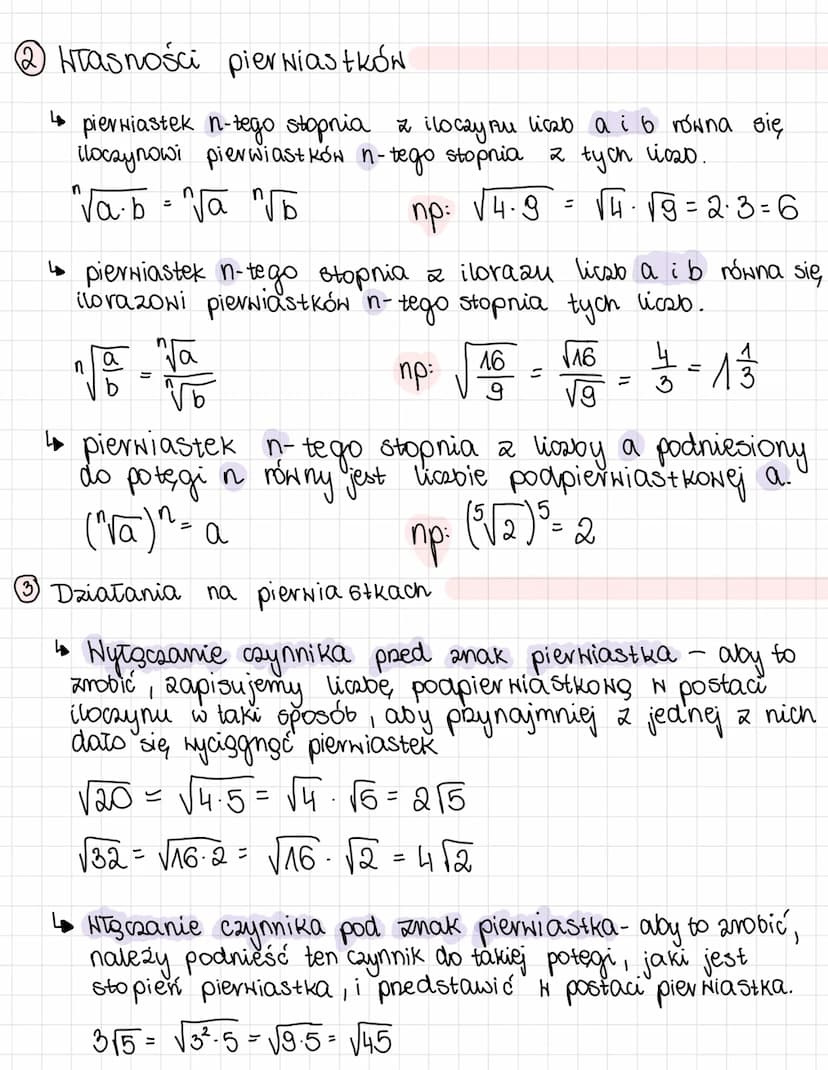 ② Własności pierwiastków
↳ pierwiastek n-tego stopnia z iloczynu liczb a i b równa się
iloczynowi pierwiastków n-tego stopnia z tych liczb.
ⁿ√(a·b) = ⁿ√a ⁿ√b np: √(4·9) = √4 · √9 = 2·3 = 6
↳ pierwiastek n-tego stopnia z ilorazu liczb a i b równa się
ilorazowi pierwiastków n-tego stopnia tych liczb.
ⁿ√(a/b) = ⁿ√a / ⁿ√b np: √(16/9) = √16/√9 = 4/3 = 1 1/3
↳ pierwiastek n-tego stopnia z liczby a podniesiony
do potęgi n równy jest liczbie podpierwiastkowej a.
(ⁿ√a)ⁿ = a np: (⁵√2)⁵ = 2
③ Działania na pierwiastkach
↳ Wyłączanie czynnika przed znak pierwiastka – aby to
zrobić, zapisujemy liczbę podpierwiastkową w postaci
iloczynu w taki sposób, aby przynajmniej z jednej z nich
dało się wyciągnąć pierwiastek
√20 = √(4·5) = √4 · √5 = 2√5
√32 = √(16·2) = √16 · √2 = 4√2
↳ Włączanie czynnika pod znak pierwiastka - aby to zrobić,
należy podnieść ten czynnik do takiej potęgi, jaki jest
stopień pierwiastka, i przedstawić w postaci pierwiastka.
3√5 = √(3²·5) = √(9·5) = √45